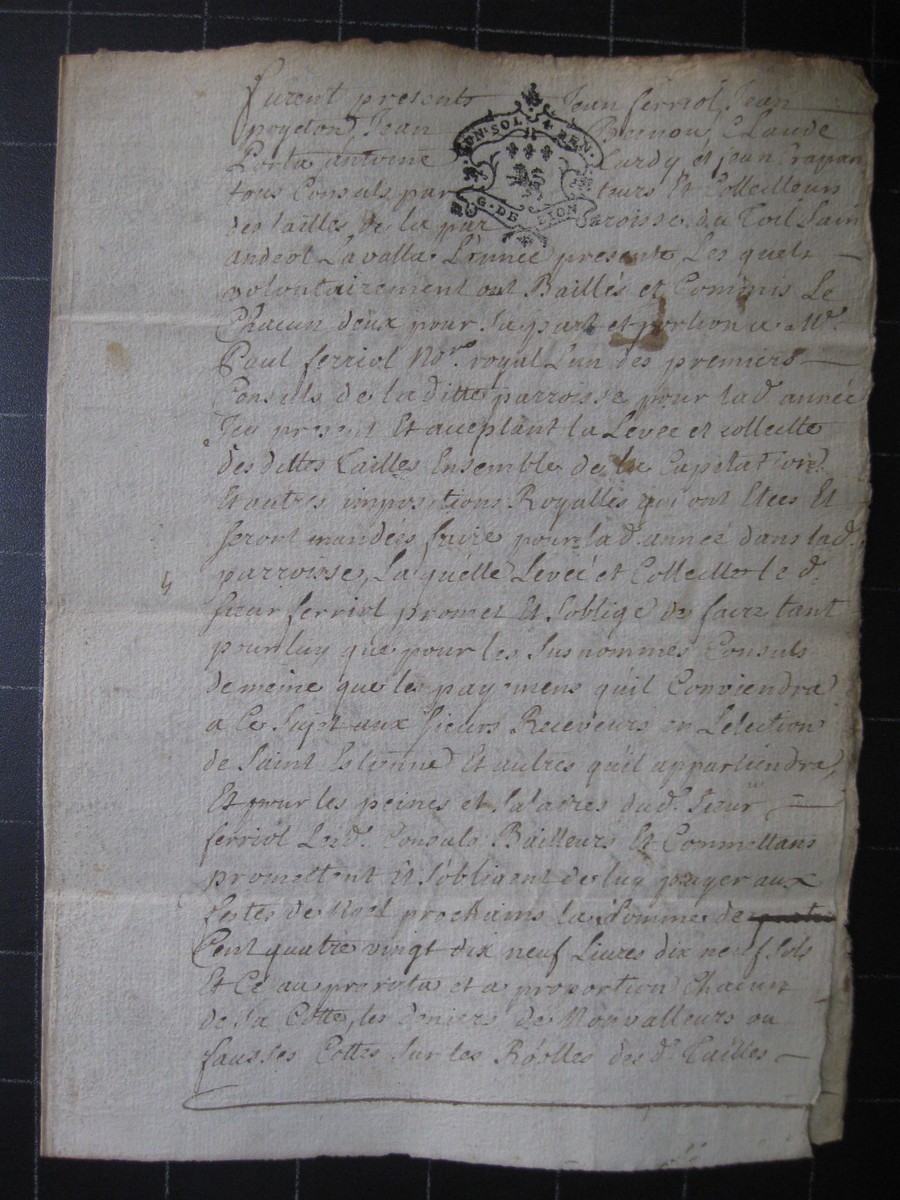 furent presents Jean ferriol, Jean
poyeton, Jean Brunon, Claude
Antoine Lardy et jean
tous Consuls par teurs Et Colleiteurs
des tailles de la parroisse du Toil Saint
andeol Lavalla L'année presente Les quels —
volontairement ont Baillés et Commis Le
Chacun deux pour sa part et portion a Mr.
Paul ferriol Nore. royal L'un des premiers —
Consuls de la ditte parroisse pour lad. année
Icy present Et acceptant la Levée et collecte
des dittes Tailles Ensemble de la Capitation
Et autres impositions Royalles qui ont Etees Et
seront mandées faire pour lad. année dans lad.
parroisse, La quelle Leveé et Colleitte le d.
sieur ferriol promet Et soblige de faire tant
pour luy que pour les susnommes Consuls
de meine que les payemens quil Conviendra
a Ce Sujet aux sieurs Receveurs en Lelection
de Saint Estienne Et autres quil appartiendra,
Et pour les peines et salaires dud. sieur —
ferriol Lesd. Consuls Bailleurs Et Commettans
promettent Et s'obligent de luy payer aux
festes de Noel prochains la somme de quatre
Cent quatre vingt dix neuf Livres dix neuf sols
Et Ce au prorata et a proportion Chacun
de sa Cotte, les deniers de Nonvalleurs ou
fausses Cottes sur les Roolles des d. Tailles —
UN. SOL. 4. DEN.
G. DE LION